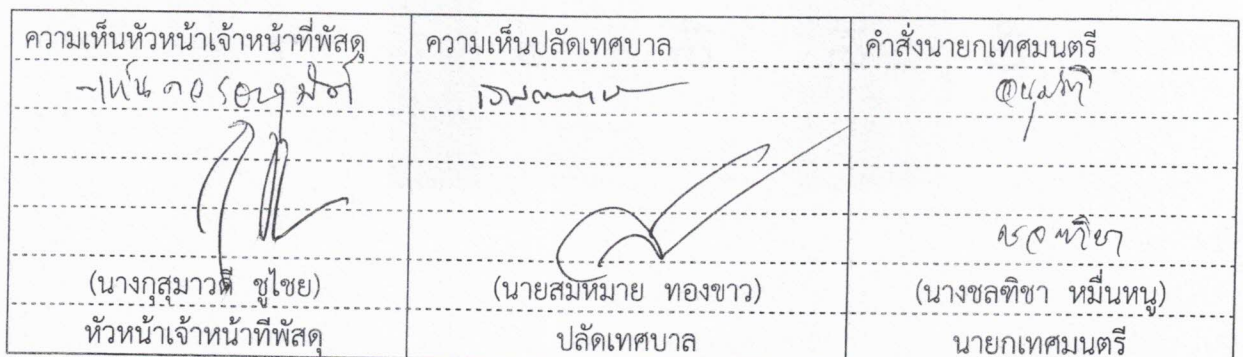 ความเห็นหัวหน้าเจ้าหน้าที่พัสดุ
ความเห็นปลัดเทศบาล
คำสั่งนายกเทศมนตรี
-เห็นควรอนุมัติ
อนุมัติ
ชลฑิชา
(นางกุสุมาวดี ชูไชย)
(นายสมหมาย ทองขาว)
(นางชลฑิชา หมื่นหนู)
หัวหน้าเจ้าหน้าที่พัสดุ
ปลัดเทศบาล
นายกเทศมนตรี